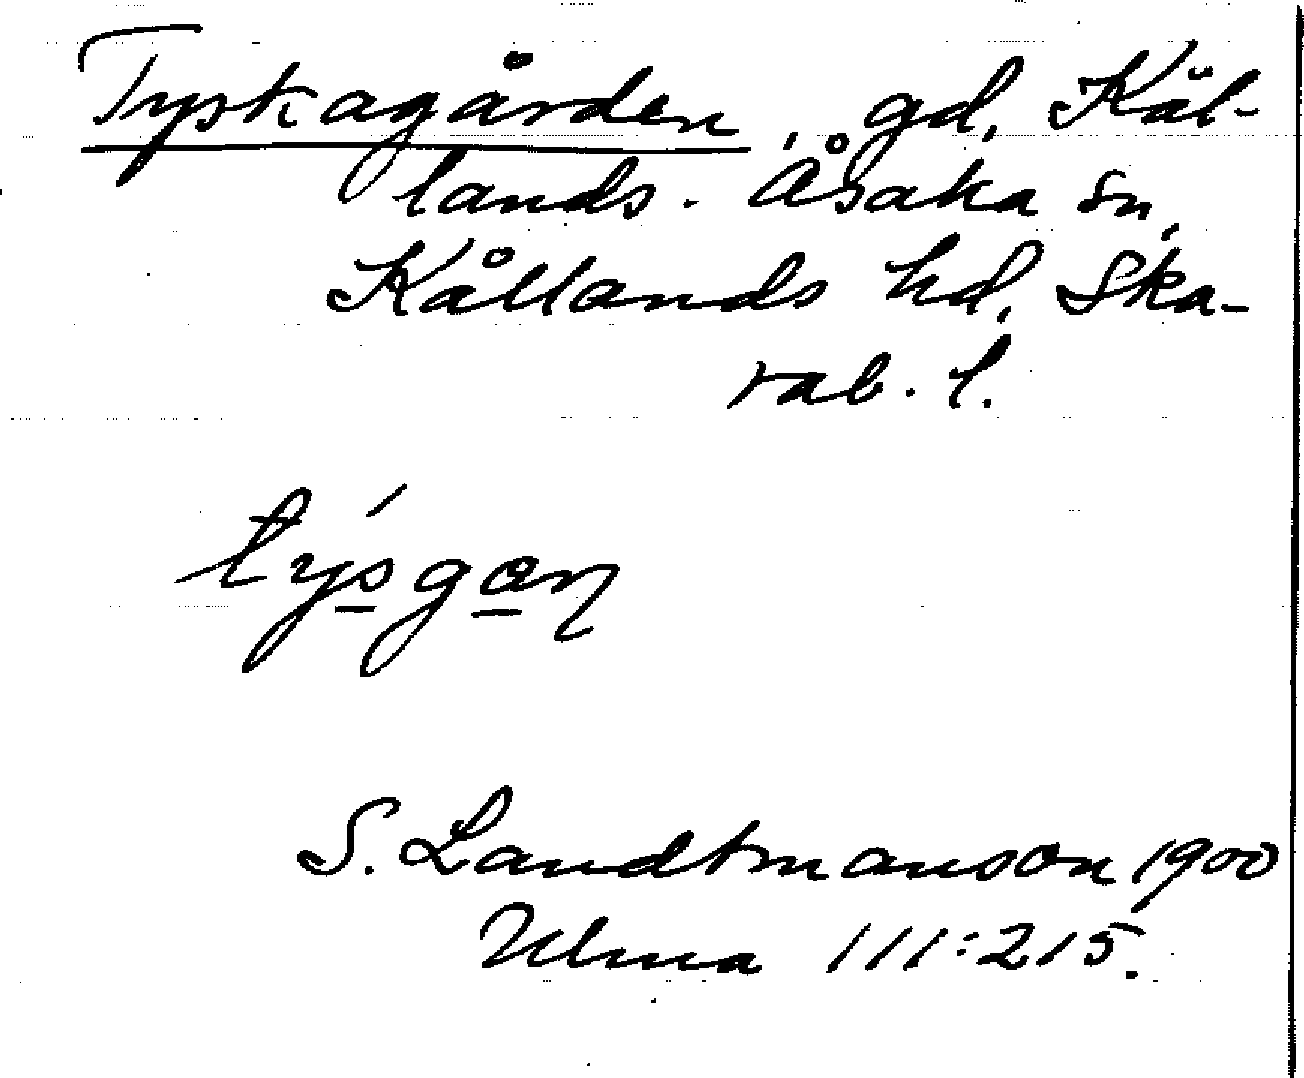 Tyskagården, gd, Käl-
lands-Åsaka sn,
Kållands hd, Ska-
rab. l.
týsgan
S. Landtmanson 1900
Ulma 111:215.